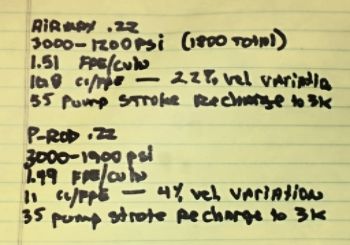 AIRMAX .22
3000-1200 psi (1800 TOTAL)
1.51 FPE/CUIN
10.8 cc/FPE — 2.2% vel VARIATION
55 pump STROKE Recharge to 3K
P-ROD .22
3000-1900 psi
1.49 FPE/CUIN
11 cc/FPE — 4% vel VARIATION
35 pump stroke Recharge to 3K